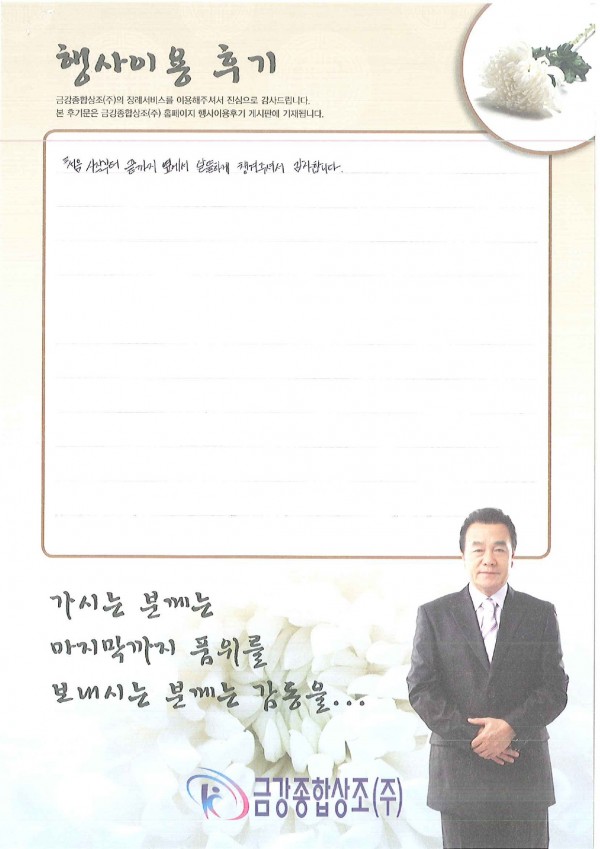 행사이용 후기
금강종합상조(주)의 장례서비스를 이용해주셔서 진심으로 감사드립니다.
본 후기문은 금강종합상조(주) 홈페이지 행사이용후기 게시판에 기재됩니다.
처음 시작부터 끝까지 옆에서 알뜰하게 챙겨주셔서 감사합니다.
가시는 분께는
마지막까지 품위를
보내시는 분께는 감동을...
금강종합상조(주)